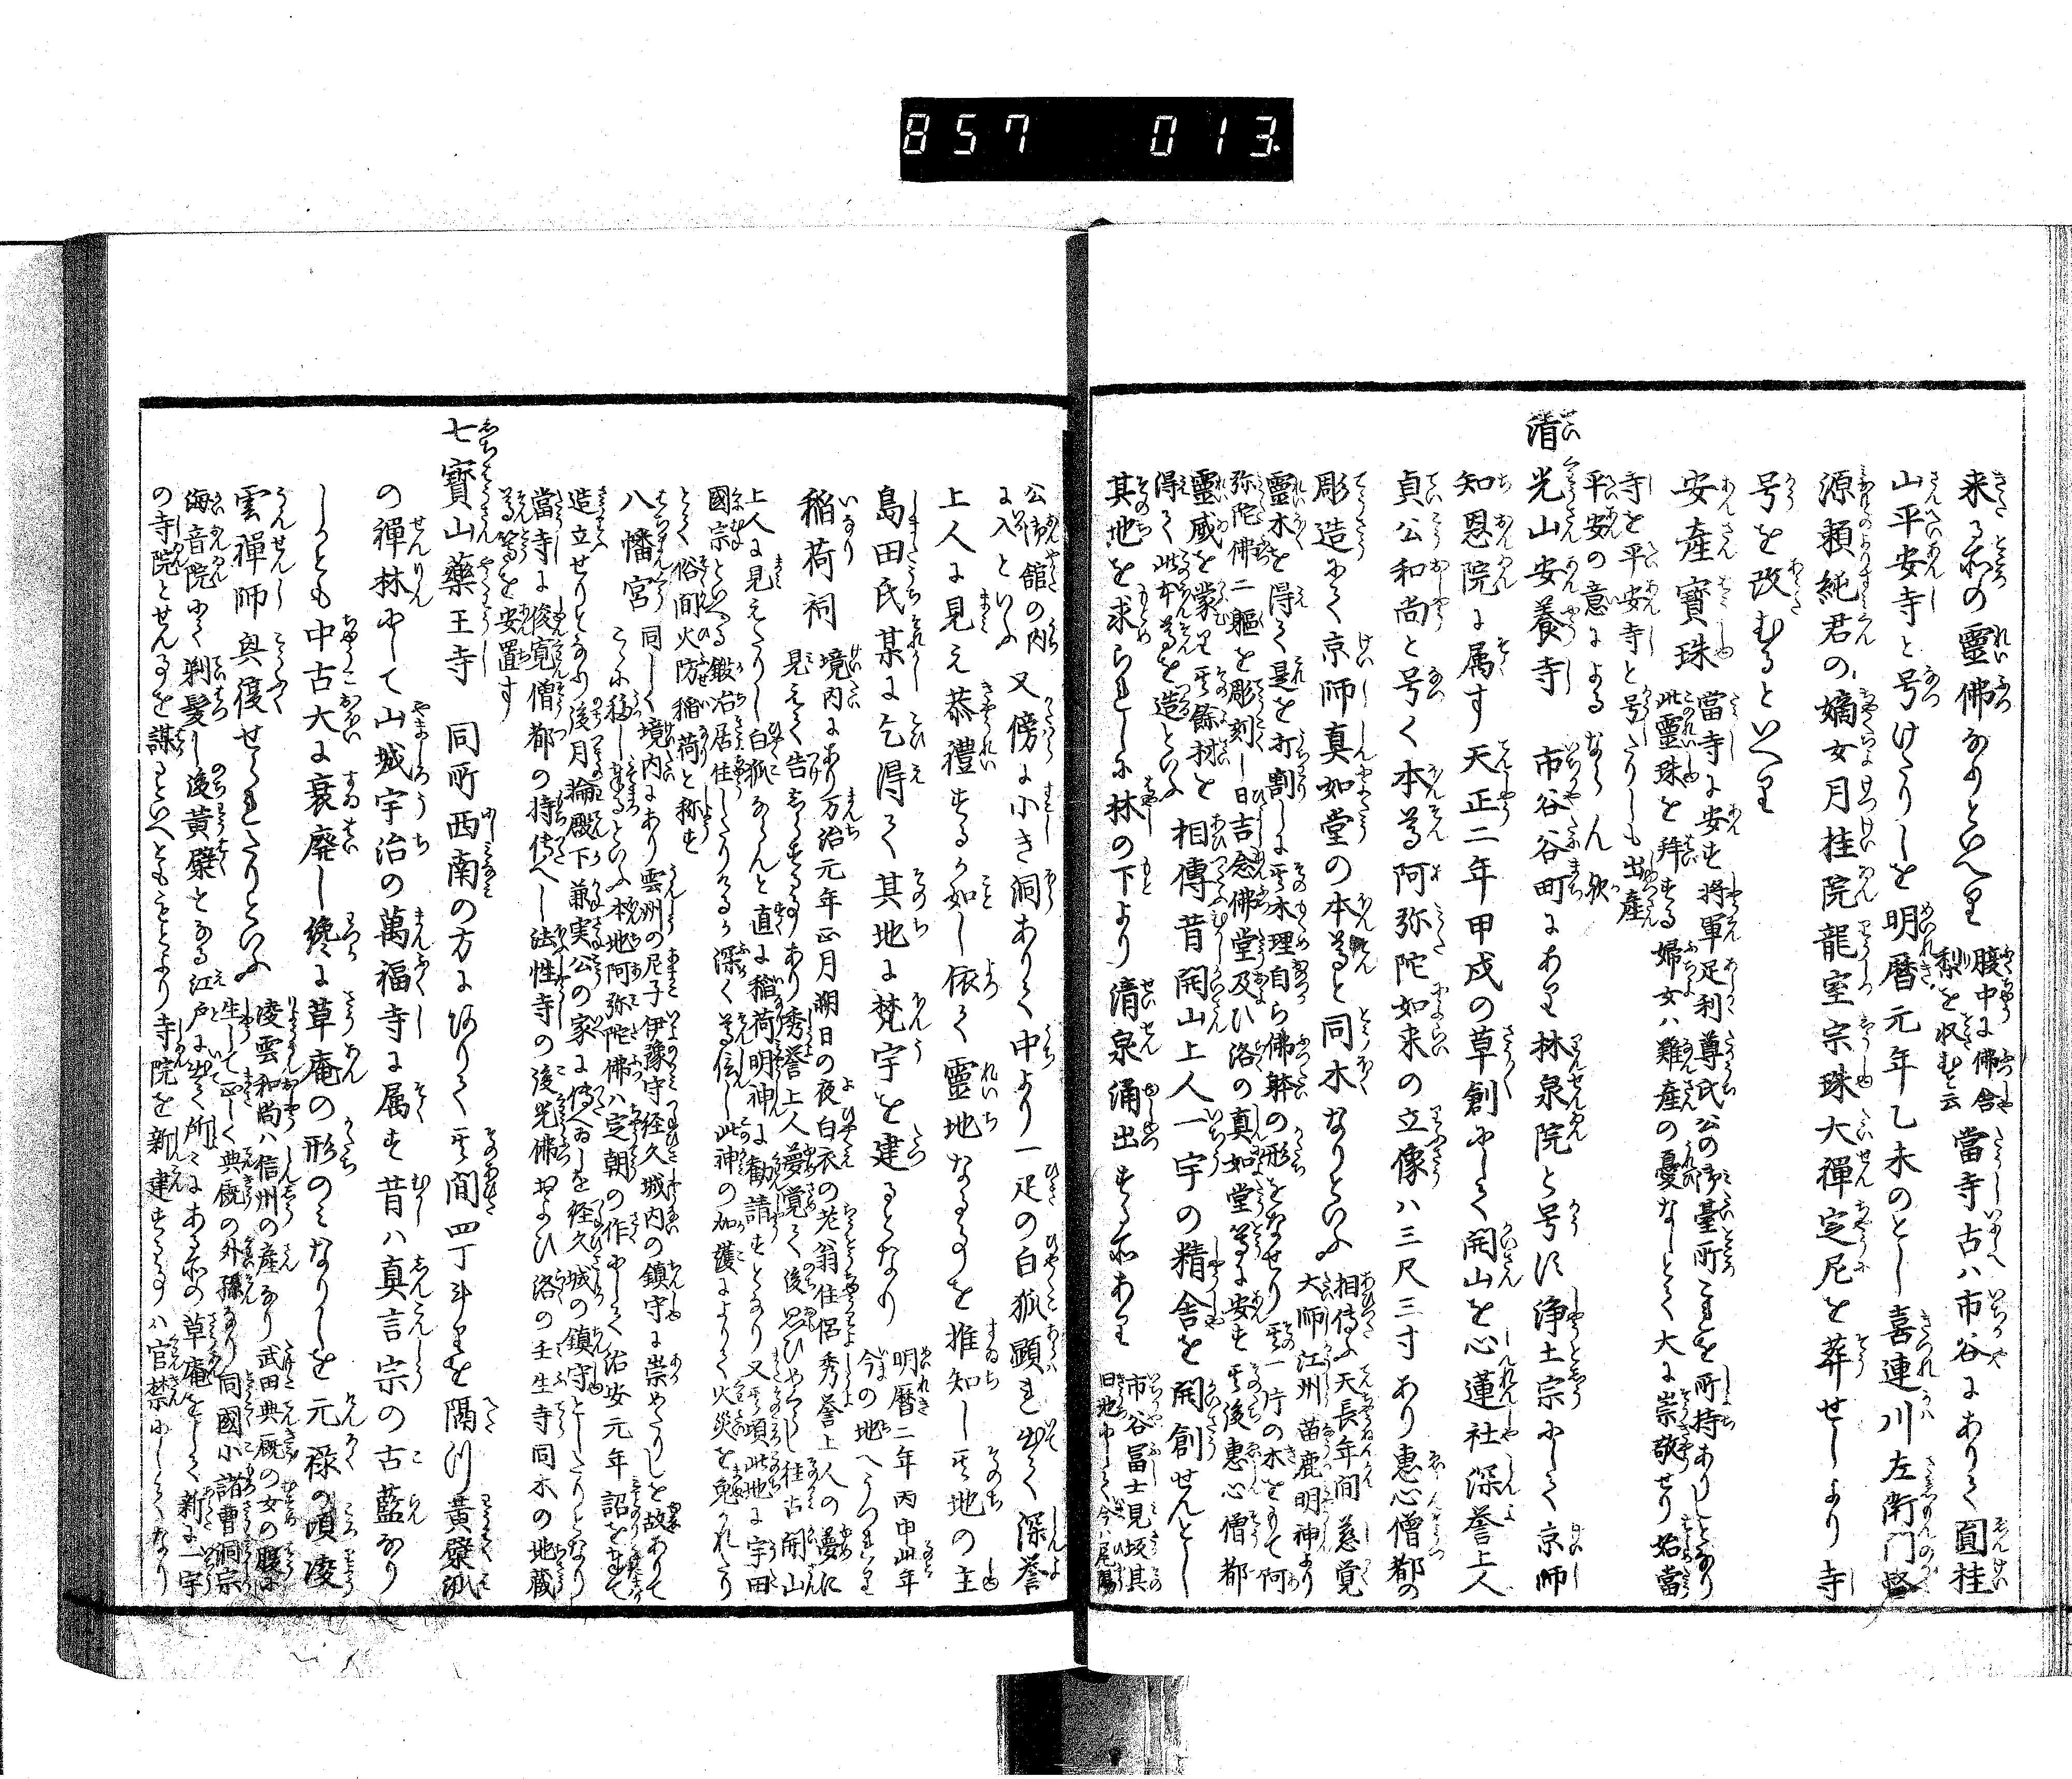 857 013.
来る所の靈佛なりといへり 腹中に佛舎
梨を収むと云 當寺古ハ市谷にありて圓桂
山平安寺と号けたりしを明暦元年乙未のとし喜連川左衛門督
源頼純君の嫡女月桂院龍室宗珠大禅定尼を葬せしより寺
号を改むるといへり
安産寶珠 當寺に安す將軍足利尊氏公の御臺所これを所持ありしとなり
此靈珠を拜する婦女ハ難産の憂なしとて大に崇敬せり始當
寺を平安寺と号したりしも出産
平安の意によるならん歟
清光山安養寺 市谷谷町にあり林泉院と号す浄土宗にして京師
知恩院に属す天正二年甲戌の草創にして開山を心蓮社深誉上人
貞公和尚と号く本尊阿弥陀如来の立像ハ三尺三寸あり惠心僧都の
彫造にて京師真如堂の本尊と同木なりといふ 相傳ふ天長年間慈覚
大師江州苗鹿明神より
靈木を得て是を打割しに其木理自ら佛躰の形をなせり其一片の木をもて阿
弥陀佛二軀を彫刻し日吉念佛堂及ひ洛の真如堂等に安す其後惠心僧都
靈感を蒙り其餘材を
得て此本尊を造るといふ 相傳昔開山上人一宇の精舎を開創せんとし
其地を求られしに林の下より清泉涌出する所あり 市谷冨士見坂其
旧地にして今ハ尾陽
公御舘の内
に入といふ 又傍に小き洞ありて中より一疋の白狐顕れ出て深誉
上人に見え恭禮するか如し依て靈地なるを推知し其地の主
島田氏某に乞得て其地に梵宇を建るとなり 明暦二年丙申此年
今の地へうつれり
稲荷祠 境内にあり万治元年正月朔日の夜白衣の老翁住侶秀誉上人の夢に
見えて告るあり秀誉上人夢覚て後思ひやらし往古開山
上人に見えたりし白狐ならんと直に稲荷明神に勧請すとなり又其頃此地に宇田
國宗といへる鍛冶居住したりしか深く尊信し此神の加護によりて火災を免かれたり
とて俗間火防稲荷と称す
八幡宮 同しく境内にあり雲州の尼子伊豫守経久城内の鎮守に崇めたりしを故ありて
こゝに移し奉るといふ本地阿弥陀佛ハ定朝の作にして治安元年詔を奉て
造立せりとなり後月輪殿下兼実公の家に傳へしを経久城の鎮守としたりとなり
當寺に俊寛僧都の持傳へし法性寺の後光佛および洛の壬生寺同木の地蔵
尊等を安置す
七寳山藥王寺 同所西南の方にありて其間四丁斗りを隔つ黄檗派
の禪林にして山城宇治の萬福寺に属す昔ハ真言宗の古藍なり
しかとも中古大に衰廃し纔に草庵の形のミなりしを元禄の頃凌
雲禪師興復せられたりといふ 凌雲和尚ハ信州の産なり武田典厩の女の腹に
生して正しく典厩の外孫なり同國小諸曹洞宗
海音院にて剃髪し後黄檗となる江戸に出て所〻にある所の草庵をして新に一宇
の寺院とせんを謀るといへとももとより寺院を新建するハ官禁にしてなり